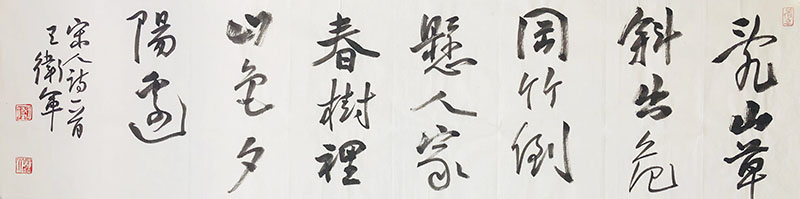 乱山草
斜出危
岡竹倒
懸人家
春樹裡
山色夕
陽邊
宋人詩一首
王衛軍